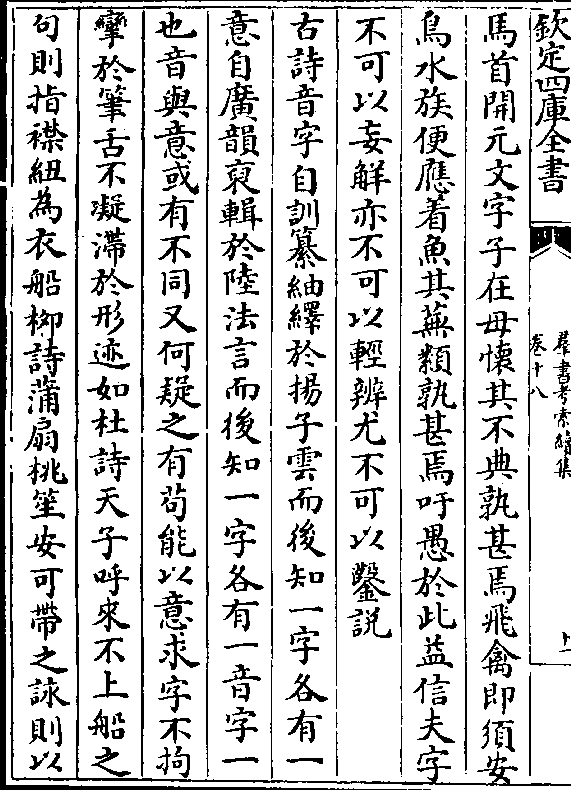 欽定四庫全書
羣書考索續集
卷十八
十一
馬首開元文字子在母懷其不典孰甚焉飛禽即須安
鳥水族便應着魚其蕪類孰甚焉吁愚於此益信夫字
不可以妄解亦不可以輕辨尤不可以鑿説
古詩音字自訓纂紬繹於揚子雲而後知一字各有一
意自廣韻裒輯於陸法言而後知一字各有一音字一
也音與意或有不同又何疑之有茍能以意求字不拘
攣於筆舌不凝滯於形迹如杜詩天子呼來不上船之
句則指襟紐為衣船柳詩蒲扇桃笙安可帶之詠則以